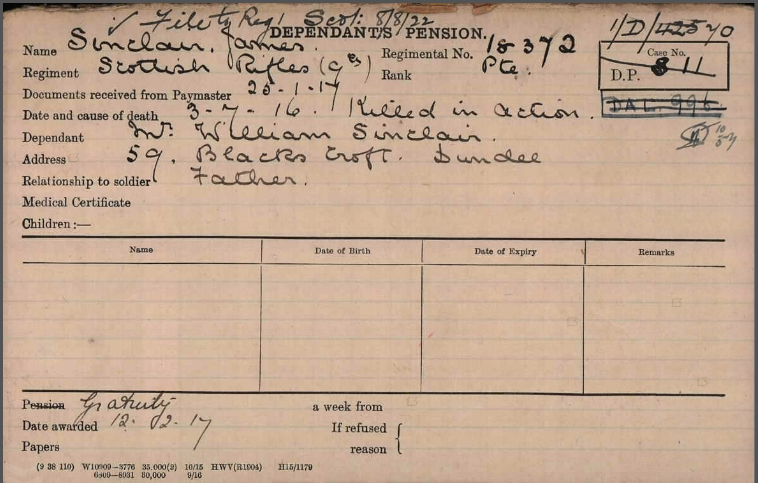 Scot: 8/8/22
DEPENDANT'S PENSION.
1/D/
Name Sinclair, James.
Regimental No. 18372
Case No.
D.P. 811
Regiment Scottish Rifles (9th)
Rank Pte.
Documents received from Paymaster 25-1-17
DAC. 996
Date and cause of death 3-7-16. Killed in action.
Dependant Mr. William Sinclair.
Address 59. Blacks Croft. Dundee
Relationship to soldier Father.
Medical Certificate
Children :—
Name Date of Birth Date of Expiry Remarks
Pension Gratuity a week from
Date awarded 12. 2. 17 If refused
Papers reason
(9 38 110) W10909—3776 35,000(2) 10/15 HWV(R1904) H15/1179
6309—8031 50,000 9/16